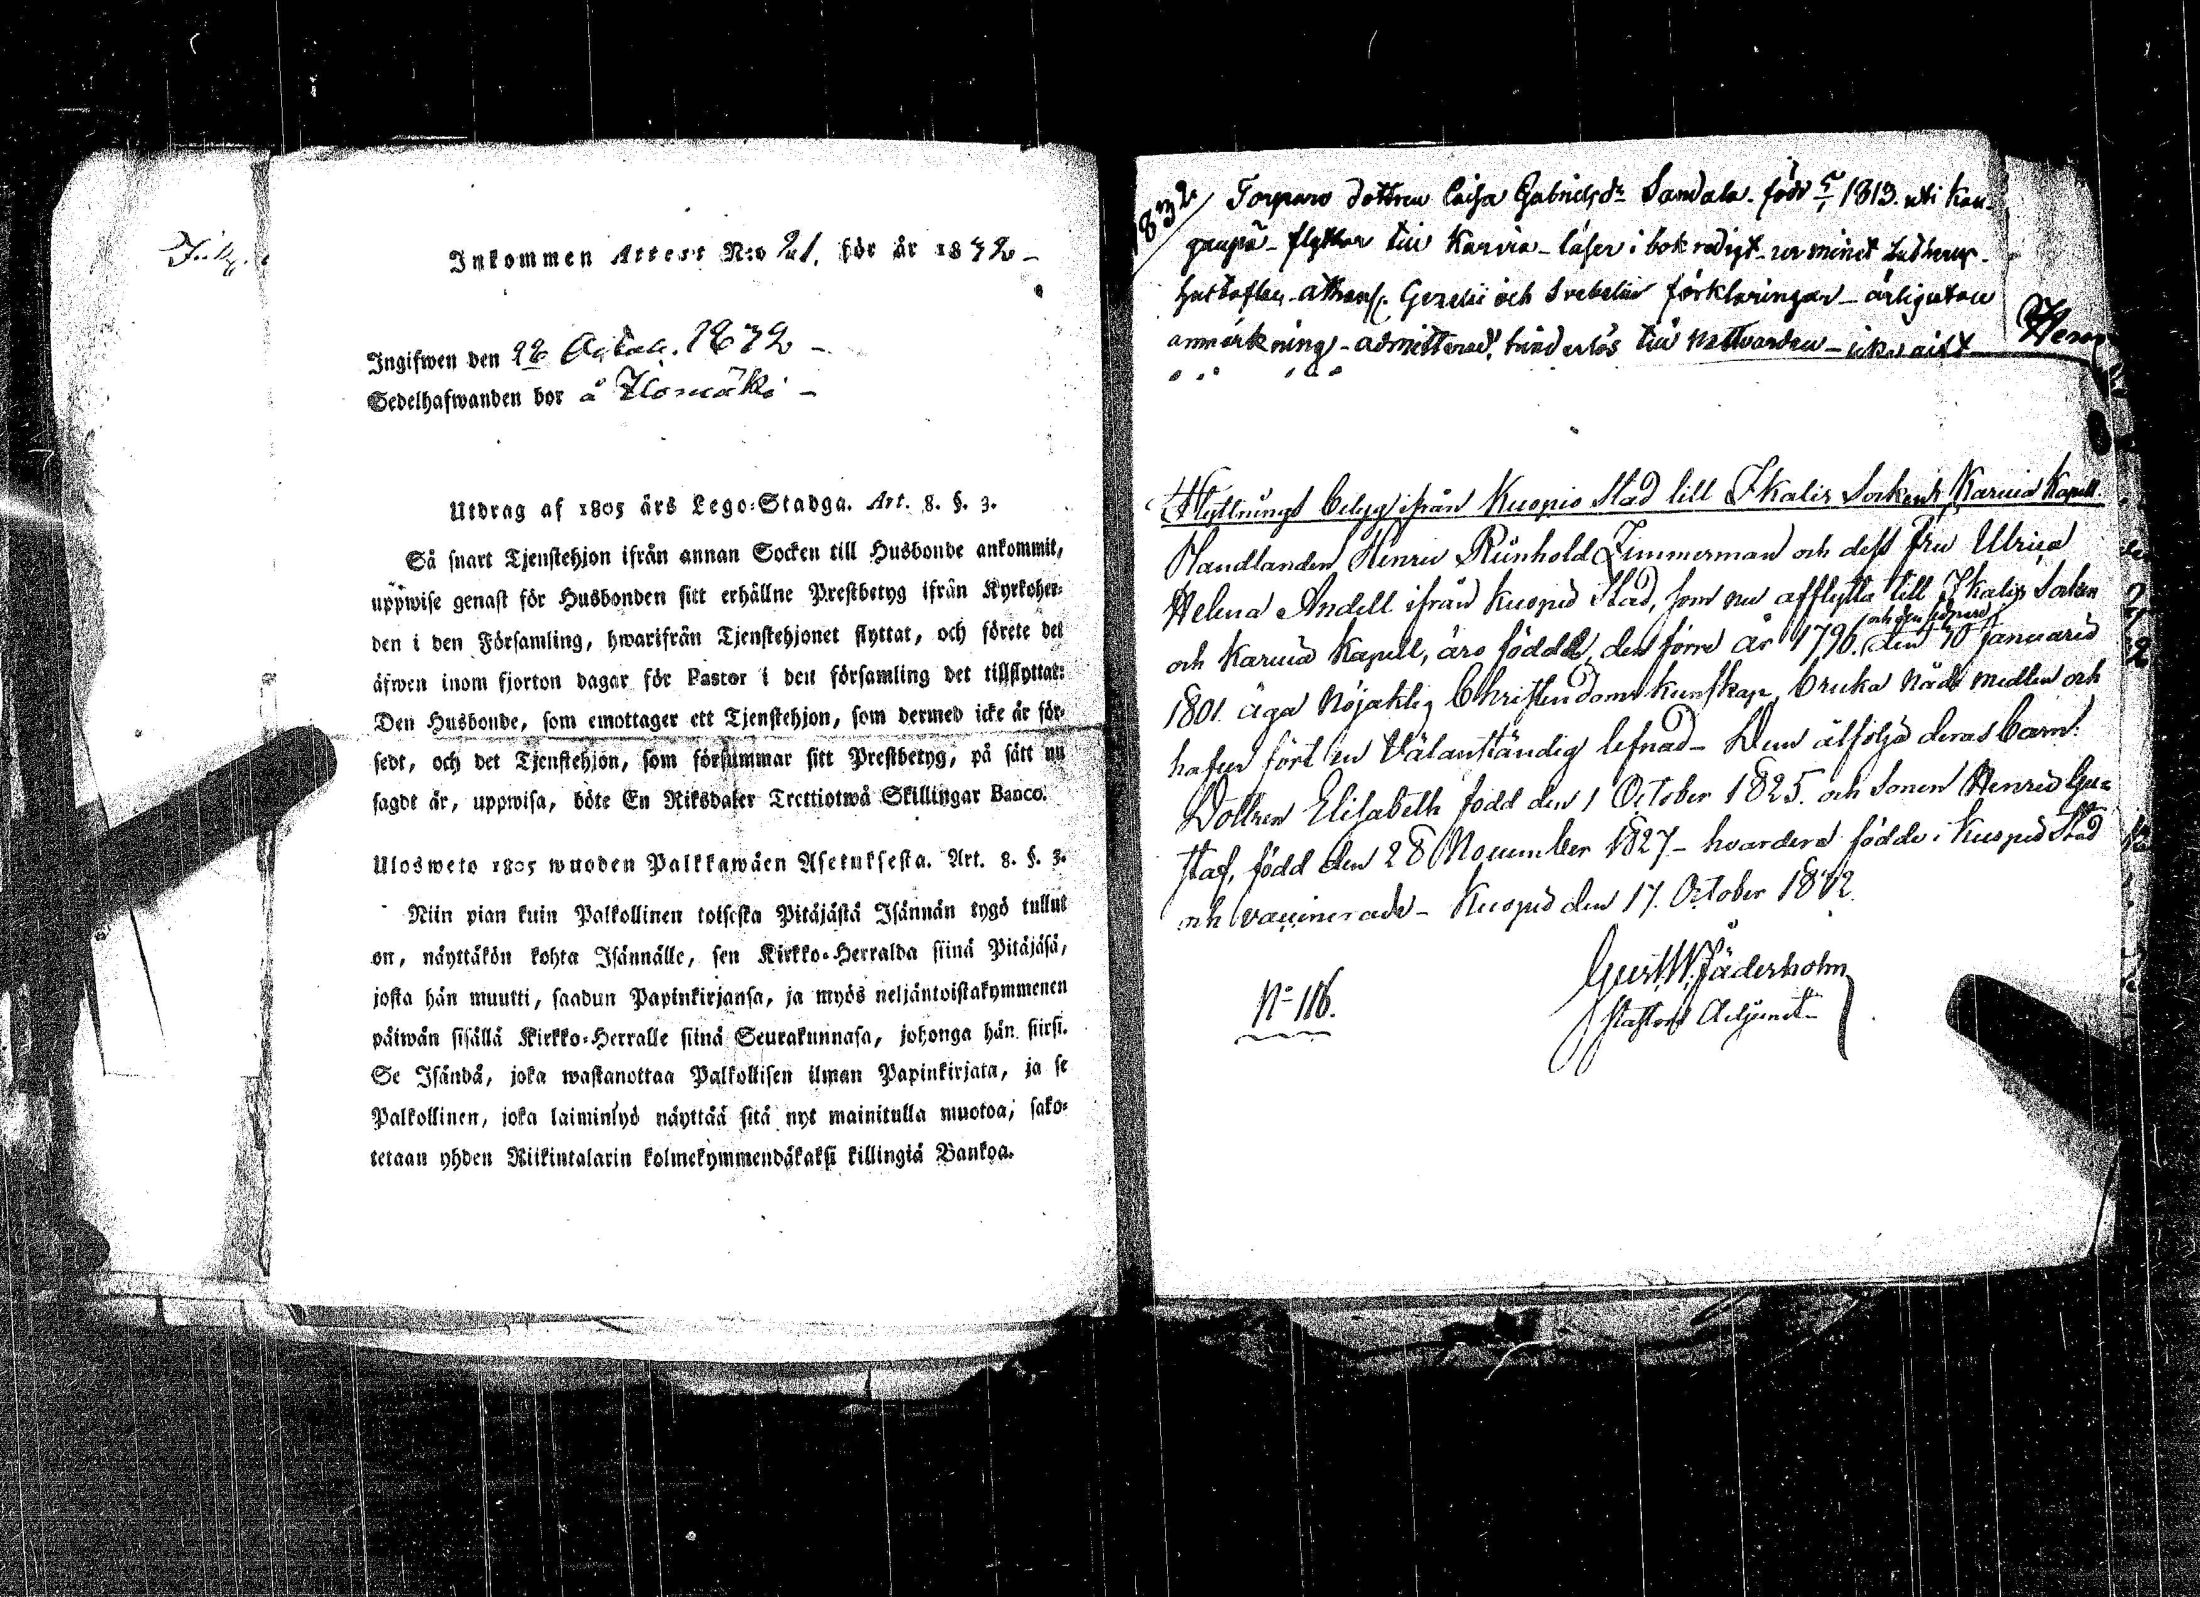 Inkommen Attest N:o 21. för år 1832 -
Ingifwen den 28 Octob. 1832 -
Sedelhafwanden bor å
Utdrag af 1805 års Lego-Stadga. Art. 8. §. 3.
Så snart Tjenstehjon ifrån annan Socken till Husbonde ankommit,
uppwise genast för Husbonden sitt erhållne Prestbetyg ifrån Kyrkoher-
den i den Församling, hwarifrån Tjenstehjonet flyttat, och förete det
äfwen inom fjorton dagar för Pastor i den församling det tillflyttat:
Den Husbonde, som emottager ett Tjenstehjon, som dermed icke är för-
sedt, och det Tjenstehjon, som försummar sitt Prestbetyg, på sätt nu
sagdt är, uppwisa, böte En Riksdaler Trettiotwå Skillingar Banco.
Ulosweto 1805 wuoden Palkkawäen Asetuksesta. Art. 8. §. 3.
Niin pian kuin Palkollinen toisesta Pitäjästä Isännän tygö tullut
on, näyttäkön kohta Isännälle, sen Kirkko-Herralda siinä Pitäjäsä,
josta hän muutti, saadun Papinkirjansa, ja myös neljäntoistakymmenen
päiwän sisällä Kirkko-Herralle siinä Seurakunnasa, johonga hän siirsi.
Se Isändä, joka wastanottaa Palkollisen ilman Papinkirjata, ja se
Palkollinen, joka laiminlyö näyttää sitä nyt mainitulla muotoa, sako-
tetaan yhden Riikintalarin kolmekymmendäkaksi killingiä Bankoa.
1832
Torpare dottren Caisa Gabrielsdr Sandala. född 1813. uti Kan-
gasipä - flyttar till Karvia - läser i bok redigt - ur minet Lutherus -
hustaflan - Athanas. Gezelii och Svebelii förklaringar - årligen utan
anmärkning - admitterad, hinderlös till nattvarden -
Flyttnings betyg ifrån Kuopio Stad till Ikalis Sockens Karvia Kapell.
Handlanden Henric Reinhold Zimmerman och dess Fru Ulrica
Helena Andell ifrån Kuopio Stad, som nu afflytta till Ikalis Socken
och Karvia Kapell, äro födda, den förre år 1796. och den sednare den 10 Januarii
1801. äga nöjaktig Christendoms kunskap, bruka nåde medlen och
hafva fört en välanständig lefnad - Dem åtfölja deras barn:
Dottren Elisabeth född den 1 October 1825. och Sonen Henric Gu-
staf, född den 28 November 1827 - hvardera födde i Kuopio Stad
och vaccinerade - Kuopio den 17. October 1832.
Gust. W. Jäderholm
Pastors Adjunct
N:o 116.